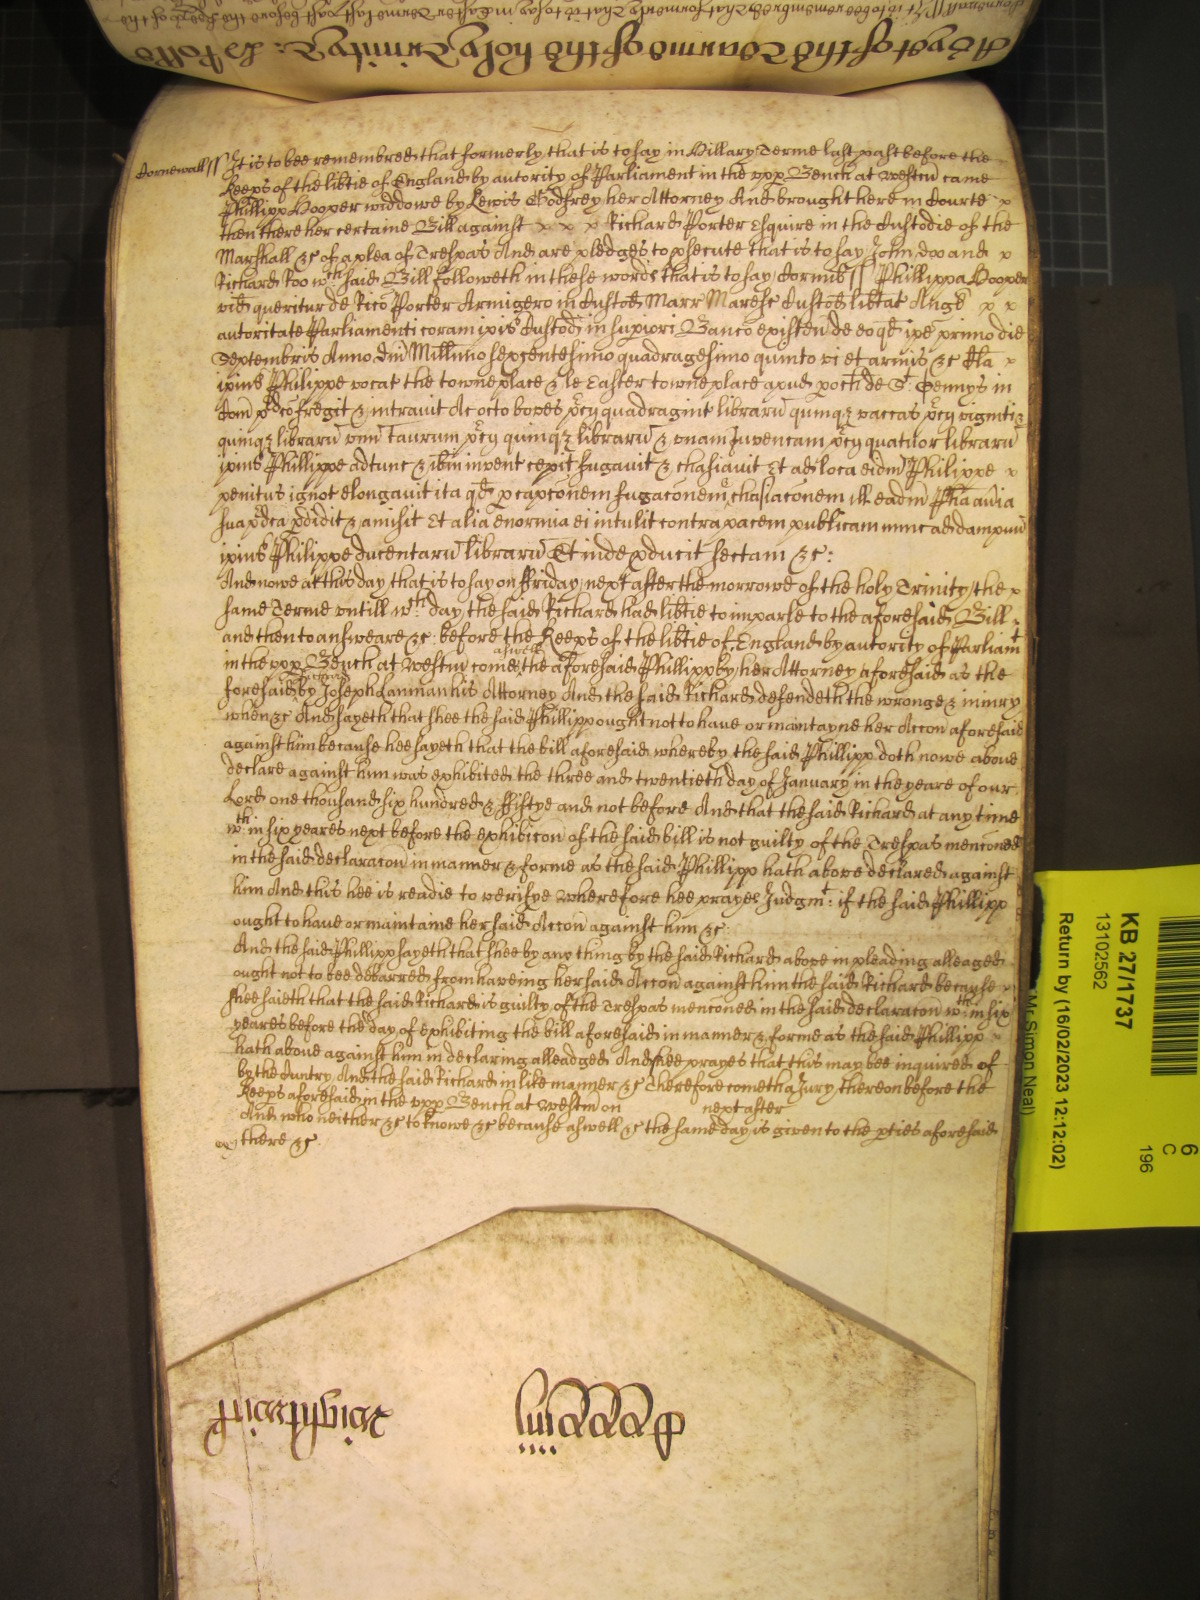 A yet of the Tearme of the holy Trinity
Cornewall ss It is to bee remembred that formerly that is to say in Hillary Terme last past before the
Keeps of the libtie of England by autority of Parliament in the vpp Bench at Westm came
Phillipp Hooper widdowe by Lewis Godfrey her Attorney And brought here in Courte x
then there her certaine Bill against x x x Richard Porter Esquire in the Custodie of the
Marshall &c of a plea of Trespas And are pledges to psecute that is to say John Doo and x
Richard Roo wch said Bill followeth in these words that is to say Cornub ss Phillippa Hooper
vid queritur de Rico Porter Armigero in Custod Marr Maresc Custod libtat Angl x x
autoritate Parliamenti coram ipis Custod in supiori Banco existen de eo qd ipe primo die
Septembris Anno Dni Millimo sexcentesimo quadragesimo quinto vi et armis &c Cla x
ipius Philippe vocat the towneplace & le Easter towneplace apud poch de St Gennys in
Com pdco fregit & intravit Ac octo boves pcij quadragint libraru quinqz vaccas pcij viginti &
quinqz librarum vnu Taurum pcij quinqz libraru & vnam Juvencam pcij quatuor libraru
ipius Phillippe adtunc & ibm invent cepit fugavit & chasiavit Et ad loca eidm Philippe x
penitus ignot elongavit ita qd p capconem fugaconem & chasiaconem ill eadm Phia averia
sua pdca pdidit & amisit Et alia enormia ei intulit contra pacem publicam nunc ad dampnu
ipius Philippe ducentaru libraru Et inde pducit sectam &c:
And nowe at this day that is to say on ffriday next after the morrowe of the holy Trinity the x
same Terme untill wch day the said Richard had libtie to imparle to the aforesaid Bill
and then to answeare &c: before the Keeps of the libtie of England by autority of Parliamt
aswell
in the vpp Bench at Westm come the aforesaid Phillipp by her Attorney aforesaid as the
foresaid by Joseph Lanman his Attorney And the said Richard defendeth the wronge & iniury
when &c And sayeth that shee the said Phillipp ought not to haue or maintayne her Accon aforesaid
against him because hee sayeth that the bill aforesaid whereby the said Phillipp doth nowe aboue
declare against him was exhibited the three and twentieth day of January in the yeare of our
Lord one thousand six hundred & ffiftye and not before And that the said Richard at any time
wthin six yeares next before the exhibicon of the said bill is not guilty of the Trespas menconed
in the said declaracon in manner & forme as the said Phillipp hath above declared against
him And this hee is readie to verifye Wherefore hee prayes Judgmt: if the said Phillipp
ought to haue or maintaine her said Accon against him &c:
And the said Phillipp sayeth that shee by any thing by the said Richard above in pleading alleaged
ought not to bee debarred from haveing her said Accon against him the said Richard because
shee saieth that the said Richard is guilty of the Trespas menconed in the said declaracon wthin six
yeares before the day of exhibiting the bill aforesaid in manner & forme as the said Phillipp
hath aboue against him in declaring alleadged And shee prayes that this may bee inquired of
by the Cuntry And the said Richard in like manner &c Therefore cometh a Jury thereon before the
Keeps aforesaid in the vpp Bench at Westm on next after
And who neither &c to knowe &c because aswell &c the same day is given to the pties aforesaid
there &c:
Wightwick
KB 27/1737
13102562
Return by (16/02/2023 12:12:02)
Mr Simon Neal)
6
C
196